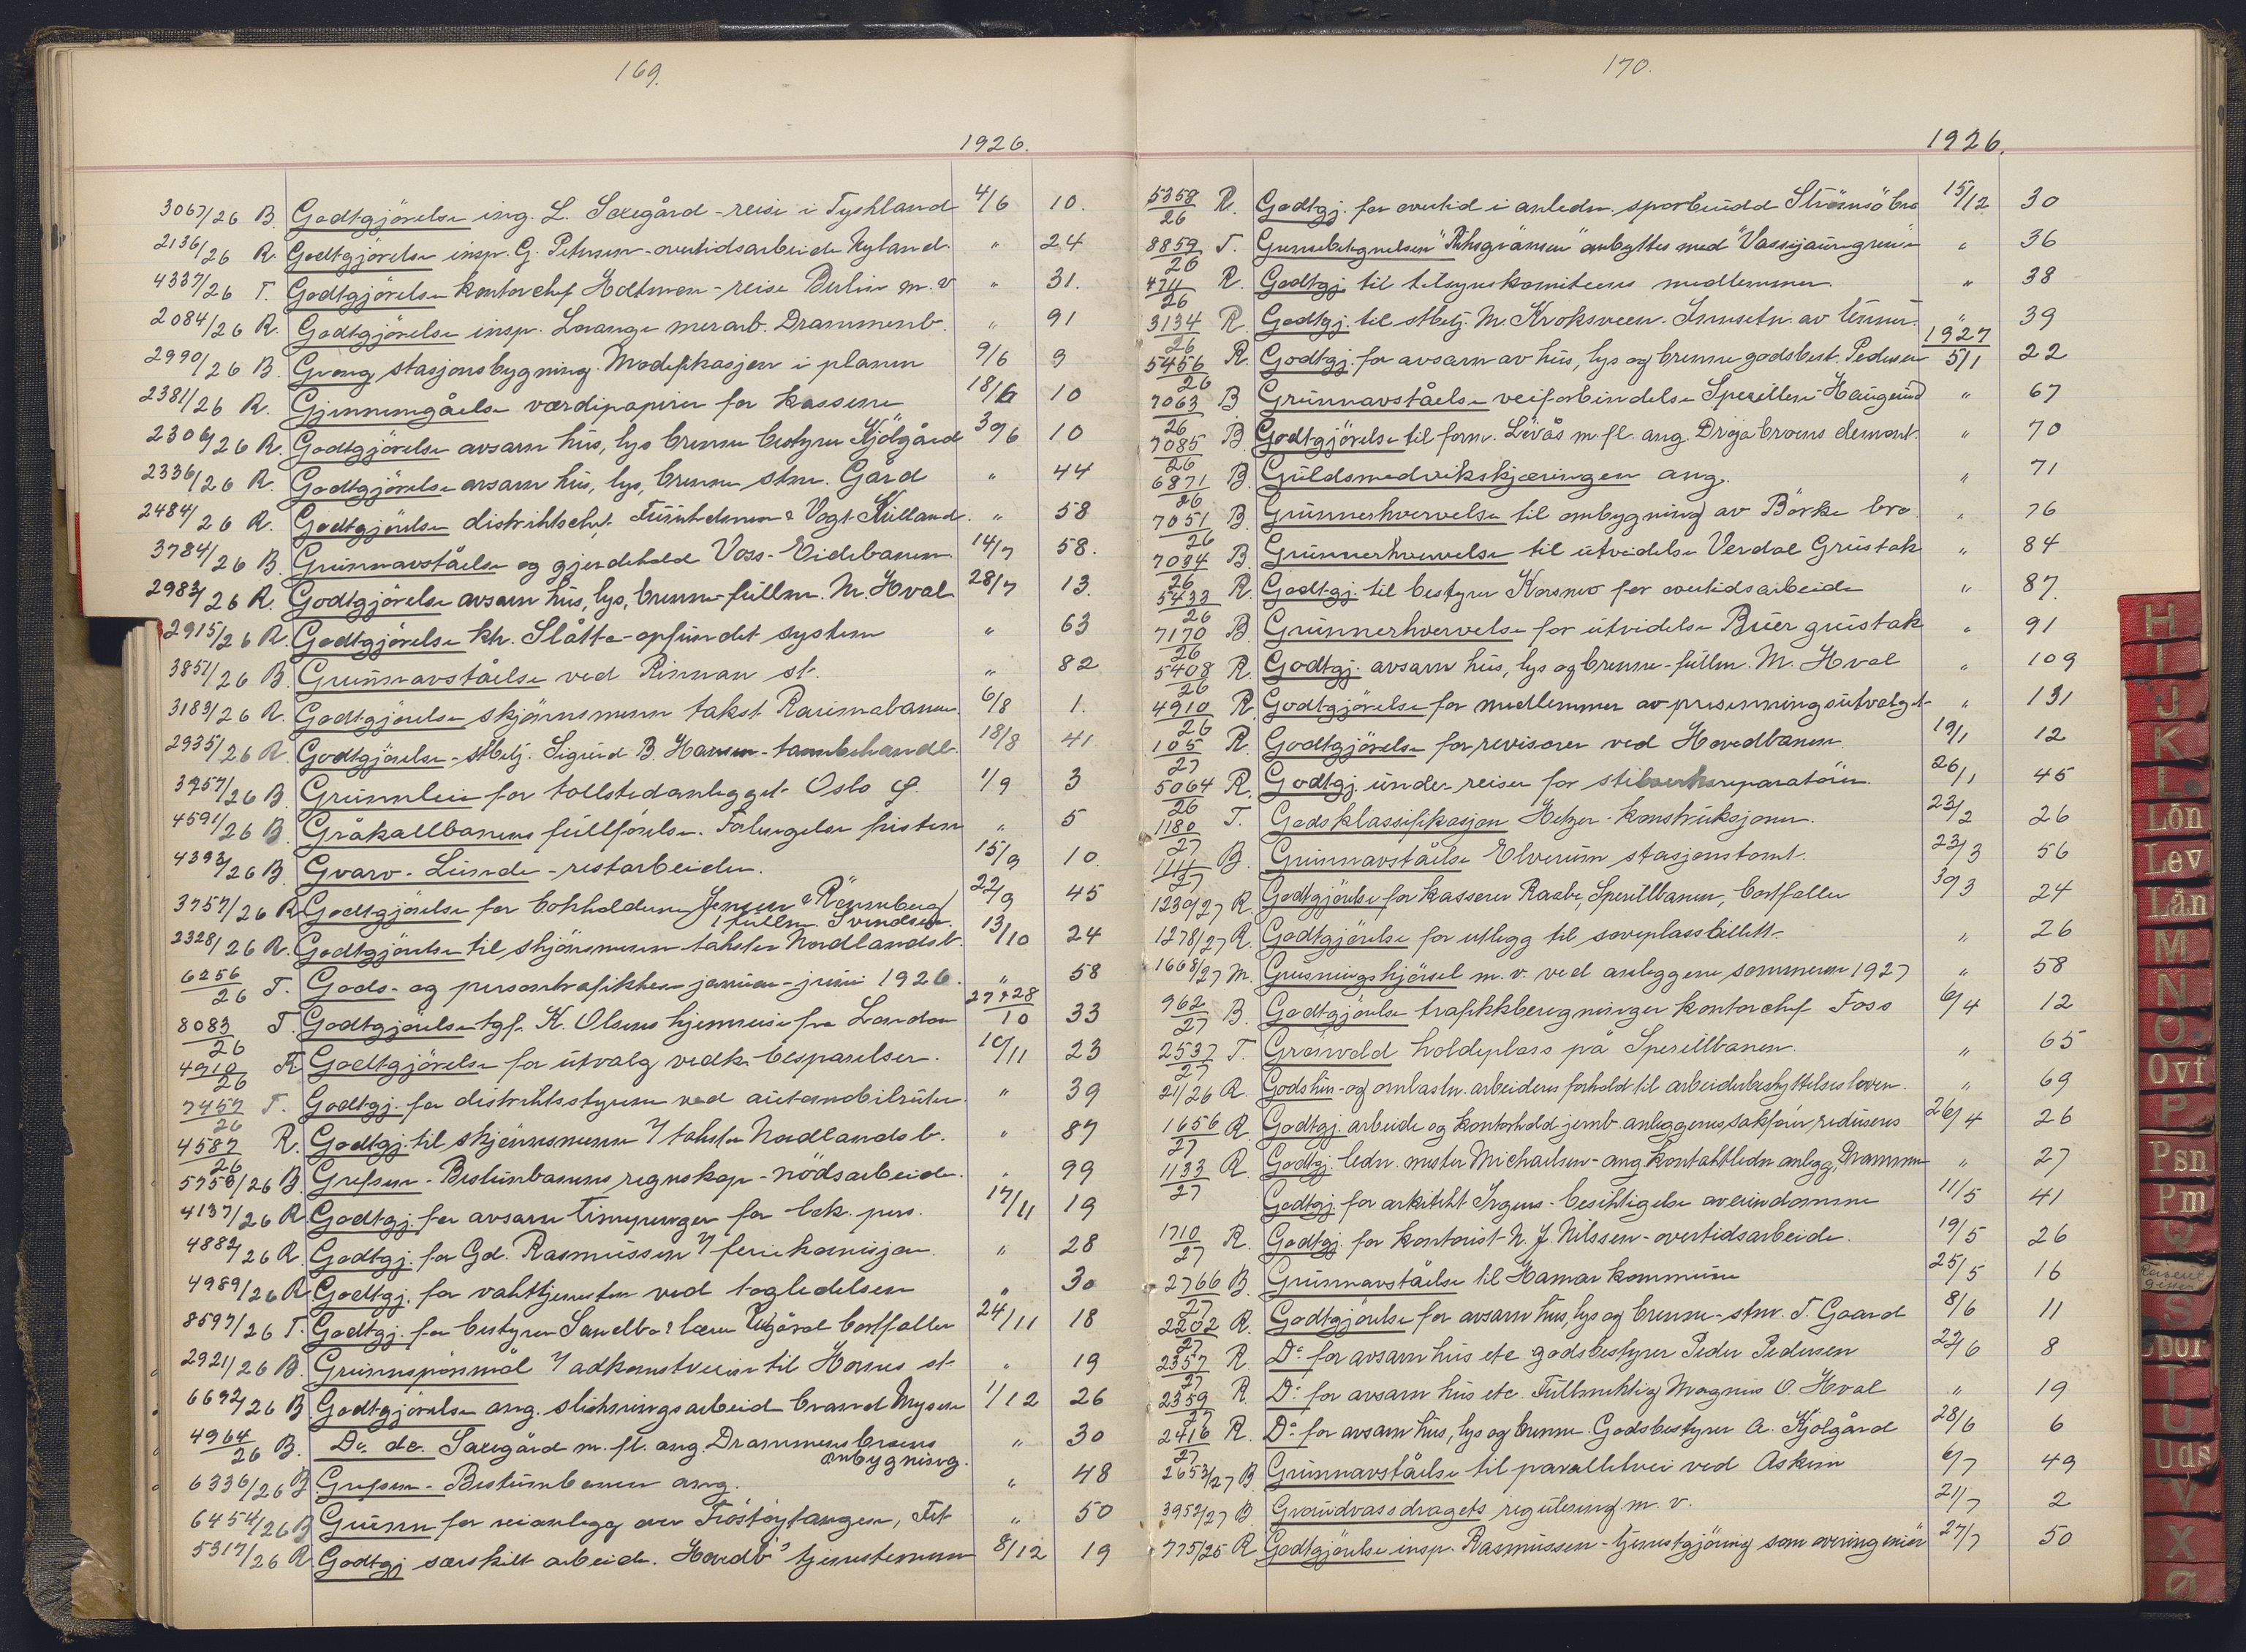 169.
1926.
3067/26 B. Godtgjörelse ing. L. Saxegård - reise i Tyskland 4/6 10.
2136/26 R. Godtgjörelse insp. G. Petersen - overtidsarbeide Nyland. " 24
4337/26 T. Godtgjörelse kontorchef Holtmon - reise Berlin m.v " 31.
2084/26 R. Godtgjörelse insp. Lorange merarb. Drammenb. " 91
2990/26 B. Grong stasjonsbygning. Modifikasjon i planen 9/6 9
2381/26 R. Gjennemgåelse værdipapirer for kassene 18/6 10
2306/26 R. Godtgjörelse avsavn hus, lys brenne bestyrer Kjölgård 30/6 10
2336/26 R. Godtgjörelse avsavn hus, lys, brenne, stm. Gård " 44
2484/26 R. Godtgjörelse distriktschef & Vogt Kulland. " 58
3784/26 B. Grunnavståelse og gjerdehold Voss-Eidebanen 14/7 58.
2983/26 R. Godtgjörelse avsavn hus, lys, brenne - fullm. M. Hval 28/7 13.
2915/26 R. Godtgjörelse ktr. Slåtta - opfundet system " 63
3851/26 B. Grunnavståelse ved Rinnan st. " 82
3183/26 R. Godtgjörelse skjönnsmenn takst Raumabanen 6/8 1.
2935/26 R. Godtgjörelse - stbetj. Sigurd B. Hansen - tannbehandl. 18/8 41
3257/26 B. Grunnleie for tollstedanlegget Oslo Ö. 1/9 3
4591/26 B. Gråkallbanens fullförelse. Forlengelse fristen " 5
4393/26 B. Gvarv - Lunde - restarbeider. 15/9 10.
3757/26 R. Godtgjörelse for bokholderne Jensen & Rönneberg 22/9 45
1 fullm. Svindsen
2328/26 R. Godtgjörelse til skjönnsmenn takster Nordlandsb. 13/10 24
6256/26 T. Gods- og persontrafikken januar-juni 1926. " 58
8083/26 T. Godtgjörelse tgf. K. Olsens hjemreise fra London 27&28/10 33
4910/26 R. Godtgjörelse for utvalg vedk. besparelser. 10/11 23
7457/26 T. Godtgj. for distriktsstyrene ved automobilruter. " 39
4587/26 R. Godtgj. til skjönnsmenn v/ takster Nordlandsb. " 87
5758/26 B. Grefsen - Bestunbanens regnskap - nödsarbeide. " 99
4137/26 R. Godtgj. for avsavn timepenger for bek. pers. 17/11 19
4882/26 R. Godtgj. for Gd. Rasmussen v/ feriekomisjon. " 28
4989/26 R. Godtgj. for vakttjenesten ved togledelsen " 30
8597/26 T. Godtgj. for bestyrer Sandbo & lærer Utgård bortfaller 24/11 18
2921/26 B. Grunnspörsmål v/ adkomstveien til Hornes st. " 19
6692/26 B. Godtgjörelse ang. slukningsarbeide brand Mysen 1/12 26
4964/26 B. Do. do. Saxegård m.fl. ang. Drammensbroens " 30
ombygning.
6336/26 B. Grefsen - Bestumbanen ang. " 48
6454/26 B. Grunn for veianlegg over Tröstöytangen, Fet " 50
5317/26 R. Godtgj særskilt arbeide. Hovedb's tjenestemenn 8/12 19
170.
1926.
5358/26 R. Godtgj. for overtid i anledn. sporbrudd Strömsö bro 15/12 30
8859/26 T. Grensebetegnelsen "Riksgränsen" ombyttes med "Vassijauregrensen " 36
4711/26 R. Godtgj. til tilsynskomiteens medlemmer. " 38
3134/26 R. Godtgj. til stbetj. M. Kroksveen. Innsetn. av tenner. " 39
1927
5456/26 R. Godtgj. for avsavn av hus, lys og brenne godsbest. Pedersen 5/1 22
7063/26 B. Grunnavståelse veiforbindelse Sperillen-Haugerud " 67
7085/26 B. Godtgjörelse til form. Lövås m.fl. ang. Drojabroens demont. " 70
6871/26 B. Guldsmedvikskjæringen ang. " 71
7051/26 B. Grunnerhvervelse til ombygning av Börke bro. " 76
7094/26 B. Grunnerhvervelse til utvidelse Verdal Grustak " 84
5433/26 R. Godtgj. til bestyrer Korsmo for overtidsarbeide " 87.
7170/26 B. Grunnerhvervelse for utvidelse Buer grustak " 91
5408/26 R. Godtgj. avsavn hus, lys og brenne - fullm. M. Hval " 109
4910/26 R. Godtgjörelse for medlemmer av presenningsutvalget " 131
105/27 R. Godtgjörelse for revisorer ved Hovedbanen 19/1 12
5064/26 R. Godtgj. under reiser for stilverksreparatörer. 26/1 45
1180/27 T. Godsklassifikasjon Hetzer - konstruksjoner. 23/2 26
1141/27 B. Grunnavståelse Elverum stasjonstomt. 23/3 56
1230/27 R. Godtgjörelse for kasserer Raabe, Sperillbanen, bortfaller 30/3 24
1278/27 R. Godtgjörelse for utlegg til soveplassbillett. " 26
1668/27 M. Grusningskjörsel m.v. ved anleggene sommeren 1927 " 58
962/27 B. Godtgjörelse trafikkberegninger kontorchef Foss 6/4 12
2537/27 T. Grönvold holdeplass på Sperillbanen. " 65
21/26 R. Godshus- og omlastn. arbeideres forhold til arbeiderbeskyttelsesloven. " 69
1656/27 R. Godtgj. arbeide og kontorhold jernb. anleggenes sakförer reduseres 26/4 26
1133/27 R. Godtgj. ledn. mester Michaelsen - ang. kontaktledn. anlegg, Drammen " 27
Godtgj. for arkitekt Irgens - besiktigelse av eiendomme 11/5 41
1710/27 R. Godtgj. for kontorist N. J. Nilssen - overtidsarbeide. 19/5 26
2766/27 B. Grunnavståelse til Hamar kommune 25/5 16
2202/27 R. Godtgjörelse for avsavn hus, lys og brenne - stm. T. Gaard 8/6 11
2357/27 R. Do. for avsavn hus etc godsbestyrer Peder Pedersen 22/6 8
2359/27 R. Do. for avsavn hus etc. Fullmektig Magnus O. Hval " 19
2416/27 R. Do. for avsavn hus, lys og brenne. Godsbestyrer A. Kjolgård 28/6 6
2653/27 B. Grunnavståelse til parallellvei ved Askim 6/7 49
3952/27 B. Graudvassdragets regulering m. v. 21/7 2
775/25 R. Godtgjörelse insp. Rasmussen - tjenestgjöring som overingeniör 27/7 50
H
I
J
K
L
Lön
Lev
Lån
M
N
O
Ovf
P
Psn
Pm
Q
S
Spor
T
U
Uds
V
X
Ø